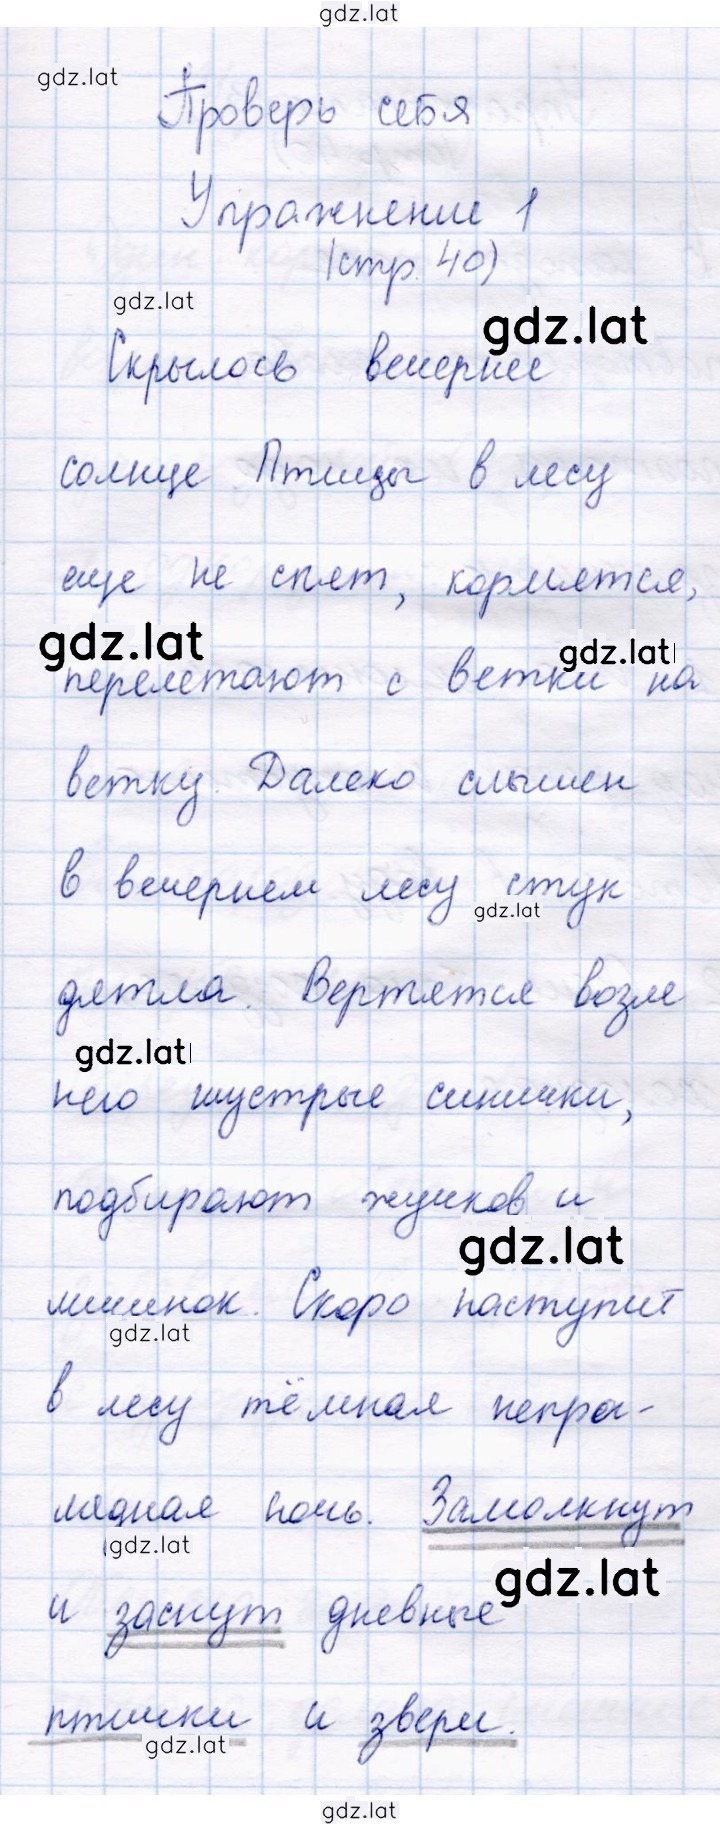 gdz.lat
gdz.lat
Проверь себя
Упражнение 1
(стр. 40)
gdz.lat
gdz.lat
Скрылось вечернее
солнце. Птицы в лесу
еще не спят, кормятся,
gdz.lat
gdz.lat
перелетают с ветки на
ветку. Далеко слышен
в вечернем лесу стук
gdz.lat
дятла. Вертятся возле
gdz.lat
него шустрые синички,
подбирают жучков и
gdz.lat
личинок. Скоро наступит
gdz.lat
в лесу тёмная непро-
глядная ночь. Замолкнут
gdz.lat
gdz.lat
и заснут дневные
птички и звери.
gdz.lat
gdz.lat